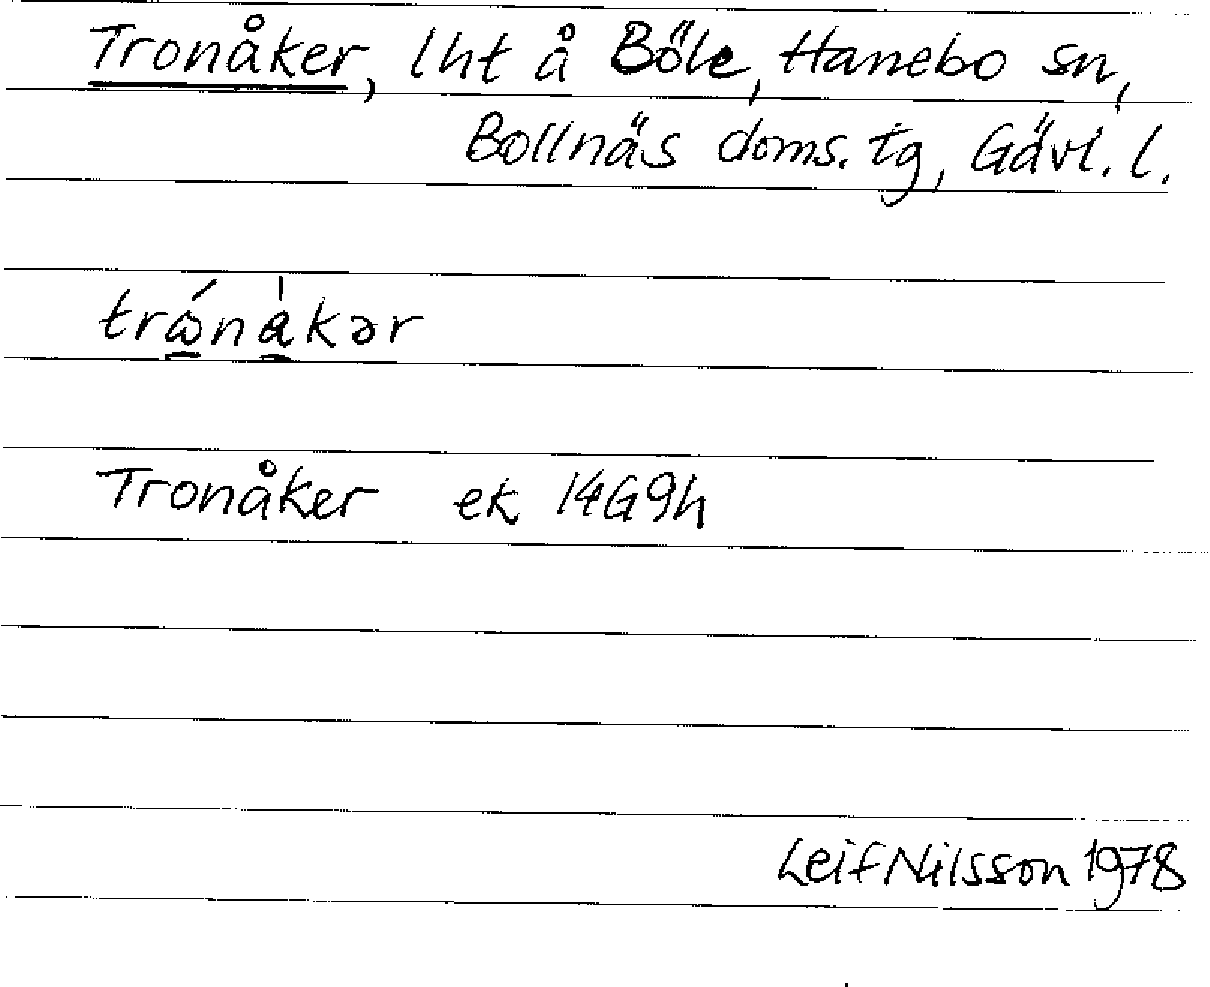 Tronåker, lht å Böle, Hanebo sn,
Bollnäs doms. tg, Gävl. l.
trώ̱nà̱kər
Tronåker ek 14G9h
Leif Nilsson 1978